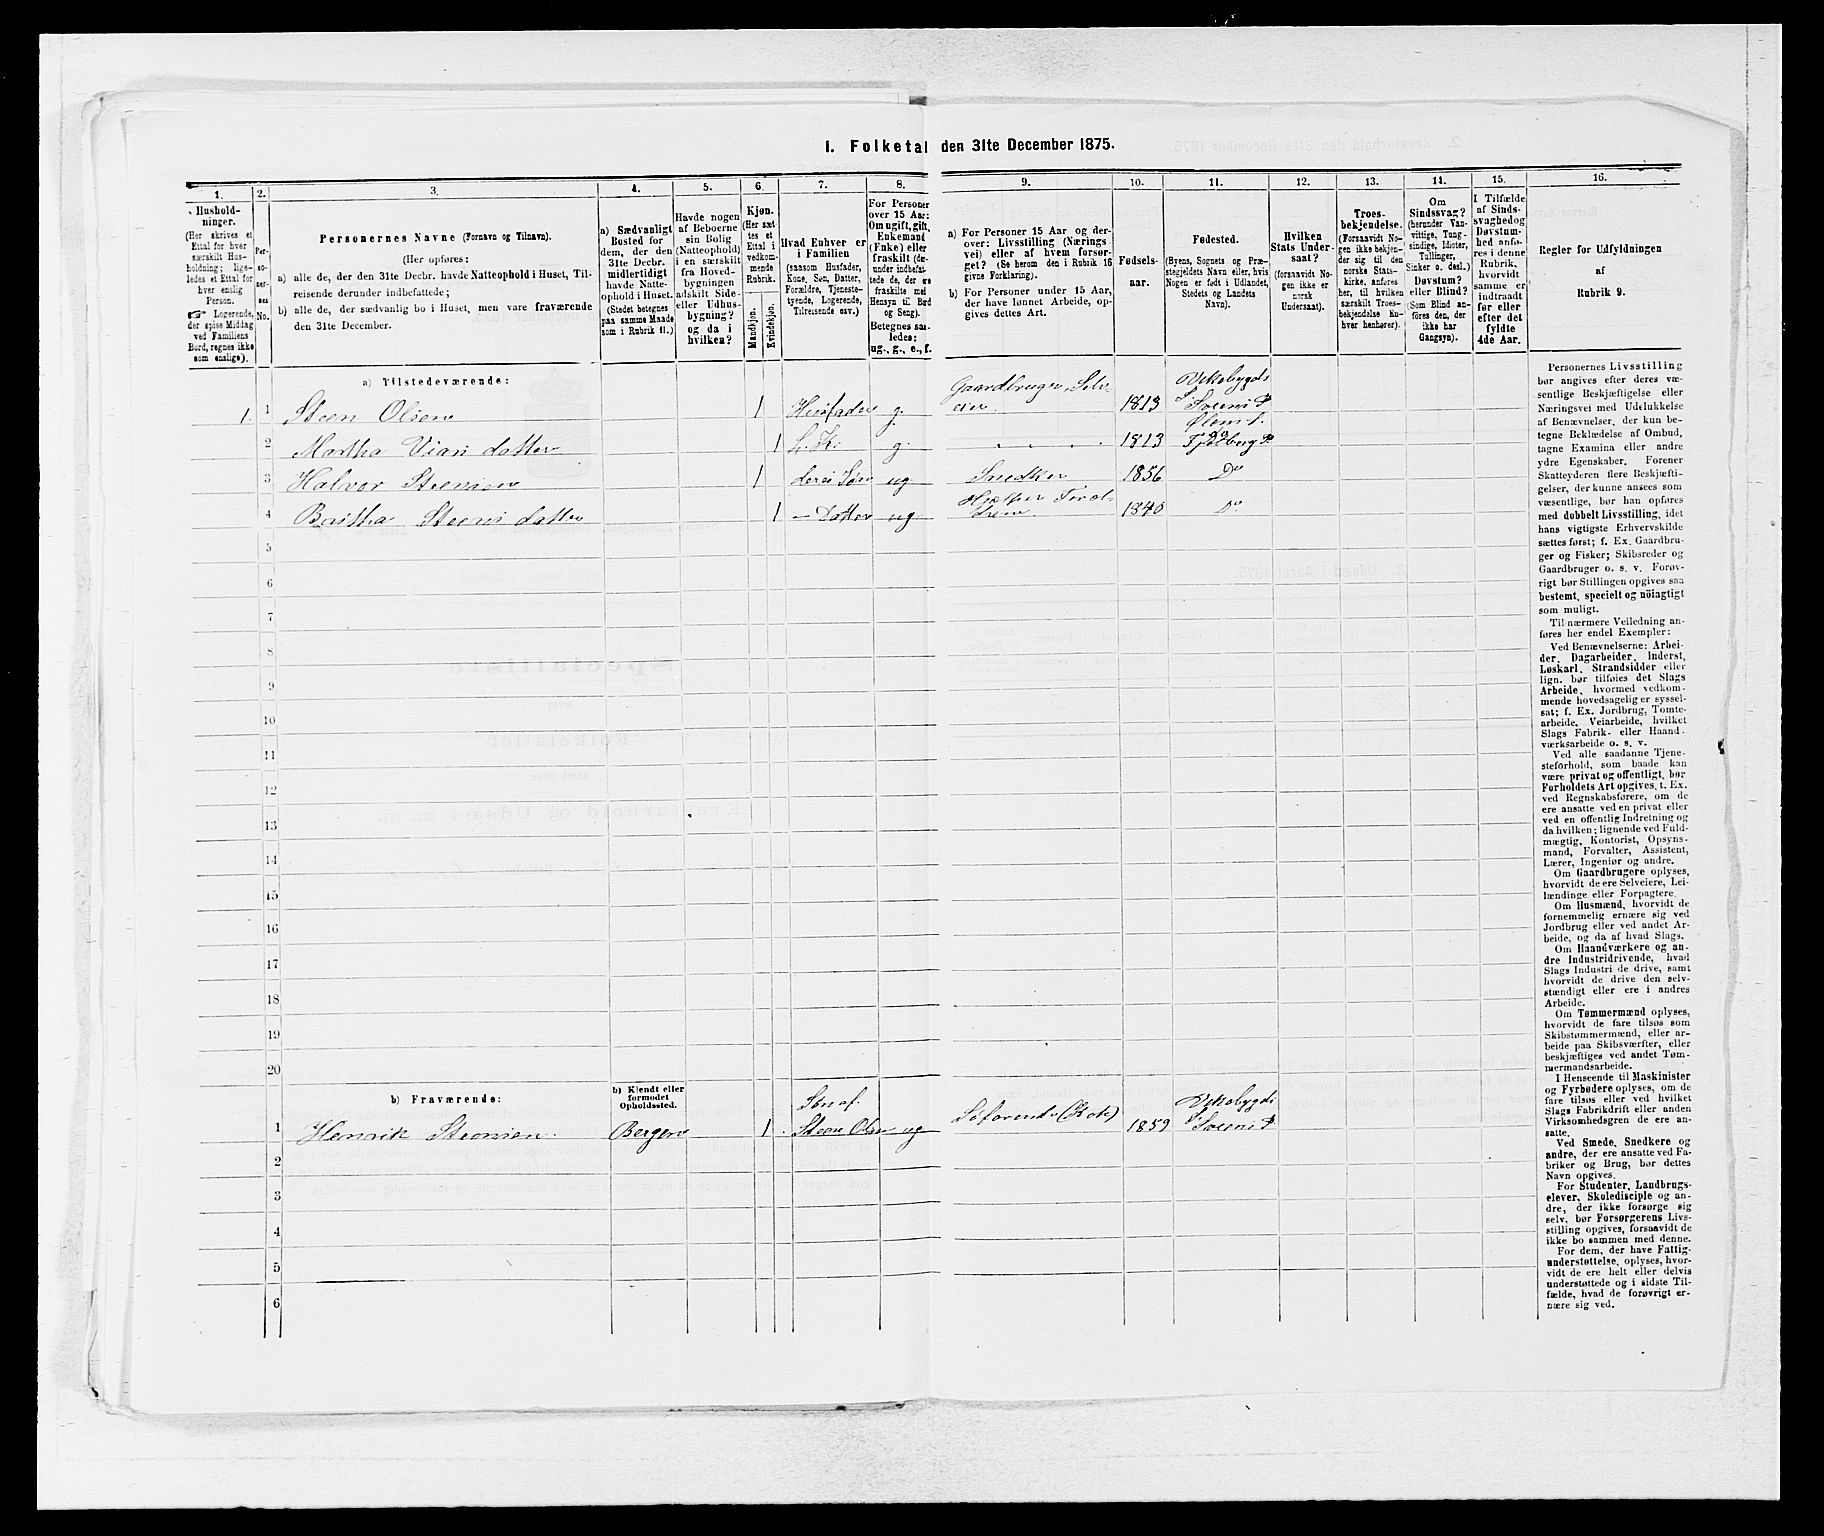 1. Folketal den 31te December 1875.
1. 2. 3. 4. 5. 6. 7. 8. 9. 10. 11. 12. 13. 14. 15. 16.
Hushold-
ninger.
(Her skrives et
Ettal for hver
særskilt Hus-
holdning; lige-
ledes et Ettal for
hver enslig
Person.
☞ Logerende,
der spise Middag
ved Familiens
Bord, regnes ikke
som enslige).
Per-
so-
ner-
nes
No.
Personernes Navne (Fornavn og Tilnavn).
(Her opføres:
a) alle de, der den 31te Decbr. havde Natteophold i Huset, Til-
reisende derunder indbefattede;
b) alle de, der sædvanlig bo i Huset, men vare fraværende
den 31te December.
a) Sædvanligt
Bosted for
dem, der den
31te Decbr.
midlertidigt
havde Natte-
ophold i Huset.
(Stedet betegnes
paa samme Maade
som i Rubrik 11.)
Havde nogen
af Beboerne
sin Bolig
(Natteophold)
i en særskilt
fra Hoved-
bygningen
adskilt Side-
eller Udhus-
bygning?
og da i
hvilken?
Kjøn.
(Her sæt-
tes et
Ettal i
vedkom-
mende
Rubrik.
Mandkjøn.
Kvindekjøn.
Hvad Enhver er
i Familien
(saasom Husfader,
Kone, Søn, Datter,
Forældre, Tjeneste-
tyende, Logerende,
Tilreisende osv.)
For Personer
over 15 Aar:
Om ugift, gift,
Enkemand
(Enke) eller
fraskilt (der-
under indbefat-
tede de, der ere
fraskilte med
Hensyn til Bord
og Seng).
Betegnes saa-
ledes:
ug., g., e., f.
a) For Personer 15 Aar og der-
over: Livsstilling (Nærings-
vei) eller af hvem forsør-
get? (Se herom den i Rubrik 16
givne Forklaring).
b) For Personer under 15 Aar,
der have lønnet Arbeide, op-
gives dettes Art.
Fødsels-
aar.
Fødested.
(Byens, Sognets og Præ-
stegjeldets Navn eller, hvis
Nogen er født i Udlandet,
Stedets og Landets
Navn).
Hvilken
Stats Under-
saat?
(forsaavidt No-
gen ikke er
norsk
Undersaat).
Troes-
bekjendelse.
(Forsaavidt No-
gen ikke bekjen-
der sig til den
norske Stats-
kirke, anføres
her, til hvilken
særskilt Troes-
bekjendelse En-
hver henhører).
Om
Sindssvag?
(herunder Van-
vittige, Tung-
sindige, Idioter,
Tullinger,
Sinker o. desl.)
Døvstum?
eller Blind?
(Som Blind an-
føres den, der
ikke har
Gangsyn).
I Tilfælde
af Sinds-
svaghed og
Døvstum-
hed anfø-
res i denne
Rubrik,
hvorvidt
samme er
indtraadt
før eller
efter det
fyldte
4de Aar.
Regler for Udfyldningen
af
Rubrik 9.
a) Tilstedeværende:
1. 1 Steen Olsen 1 Husfader g. Gaardbruger, Selv-
eier 1813 Vikebygds
S. Sveens P.
2 Martha Vians datter 1 h. K. g. " " " 1813 Ølens S.
Fjelberg P.
3 Halvor Steensen 1 deres Søn ug Snedker 1856 Do
4 Baritha Steens datter 1 – Datter ug Hjelper Foræl-
drene 1840 Do
5
6
7
8
9
10
11
12
13
14
15
16
17
18
19
20
b) Fraværende:
b) Kjendt eller
formodet
Opholdssted.
1 Henrik Steensen Bergen 1 Søn af
Steen Olsen ug Søfarende (Kok) 1859 Vikebygds
S. Sveens P
2
3
4
5
6
Personernes Livsstilling
bør angives efter deres væ-
sentlige Beskjæftigelse eller
Næringsvei med Udelukkelse
af Benævnelser, der kun be-
tegne Beklædelse af Ombud,
tagne Examina eller andre
ydre Egenskaber. Forener
Skatteyderen flere Beskjæfti-
gelser, der kunne ansees som
væsentlige, bør han opføres
med dobbelt Livsstilling, idet
hans vigtigste Erhvervskilde
sættes først; f. Ex. Gaardbru-
ger og Fisker; Skibsreder og
Gaardbruger o. s. v. Forøv-
rigt bør Stillingen opgives saa
bestemt, specielt og nöiagtigt
som muligt.
Til nærmere Veiledning an-
føres her endel Exempler:
Ved Benævnelserne: Arbei-
der, Dagarbeider, Inderst,
Løskarl, Strandsidder eller
lign. bør tilføies det Slags
Arbeide, hvormed vedkom-
mende hovedsagelig er syssel-
sat; f. Ex. Jordbrug, Tomte-
arbeide, Veiarbeide, hvilket
Slags Fabrik- eller Haand-
værksarbeide o. s. v.
Ved alle saadanne Tjene-
steforhold, som baade kan
være privat og offentligt, bør
Forholdets Art opgives, t. Ex.
ved Regnskabsførere, om de
ere ansatte ved en privat eller
ved en offentlig Indretning og
da hvilken; lignende ved Fuld-
mægtig, Kontorist, Opsyns-
mand, Forvalter, Assistent,
Lærer, Ingeniør og andre.
Om Gaardbrugere oplyses,
hvorvidt de ere Selveiere, Lei-
lændinge eller Forpagtere.
Om Husmænd, hvorvidt de
fornemmelig ernære sig ved
Jordbrug eller ved andet Ar-
beide, og da af hvad Slags.
Om Haandværkere og an-
dre Industridrivende, hvad
Slags Industri de drive, samt
hvorvidt de drive den selv-
stændigt eller ere i andres
Arbeide.
Om Tømmermænd oplyses,
hvorvidt de fare tilsøs som
Skibstømmermænd, eller ar-
beide paa Skibsværfter, eller
beskjæftiges ved andet Tøm-
mermandsarbeide.
I Henseende til Maskinister
og Fyrbødere oplyses, om de
fare tilsøs eller ved hvilket
Slags Fabrikdrift eller anden
Virksomhedsgren de ere an-
satte.
Ved Smede, Snedkere og
andre, der ere ansatte ved Fa-
briker og Brug, bør dettes
Navn opgives.
For Studenter, Landbrugs-
elever, Skoledisciple og an-
dre, der ikke forsørge sig
selv, bør Forsørgerens Livs-
stilling opgives, forsaavidt de
ikke bo sammen med denne.
For dem, der have Fattig-
understøttelse, oplyses, hvor-
vidt de ere helt eller delvis
understøttede og i sidste Til-
fælde, hvad de forøvrigt er-
nære sig ved.